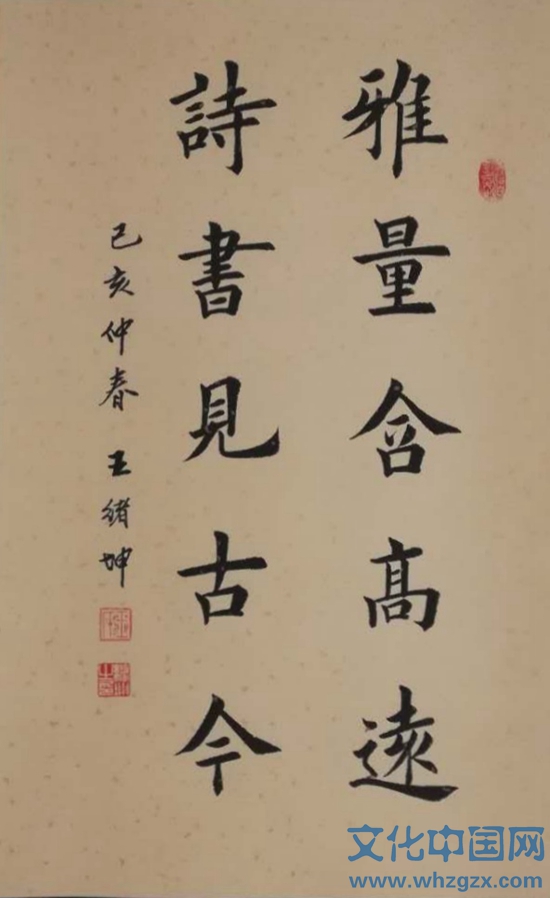 雅量含髙遠
詩書見古今
己亥仲春 王緒坤
文化中国网
www.whzgzx.com